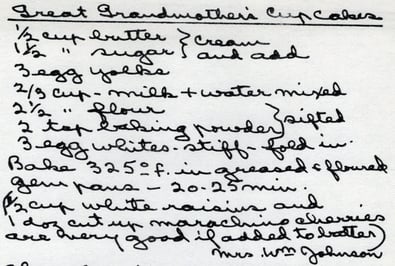 Great Grandmother's Cup Cakes
1/2 cup butter } cream
1 1/2 " sugar } and add
3 egg yolks
2/3 cup - milk + water mixed
2 1/2 " flour
2 tsp baking powder } sifted
3 egg whites - stiff - fold in.
Bake 325° f. in greased & floured
gem pans - 20-25 min.
(1/2 cup white raisins and
1 doz cut up maraschino cherries
are very good if added to batter)
Mrs. Wm Johnson